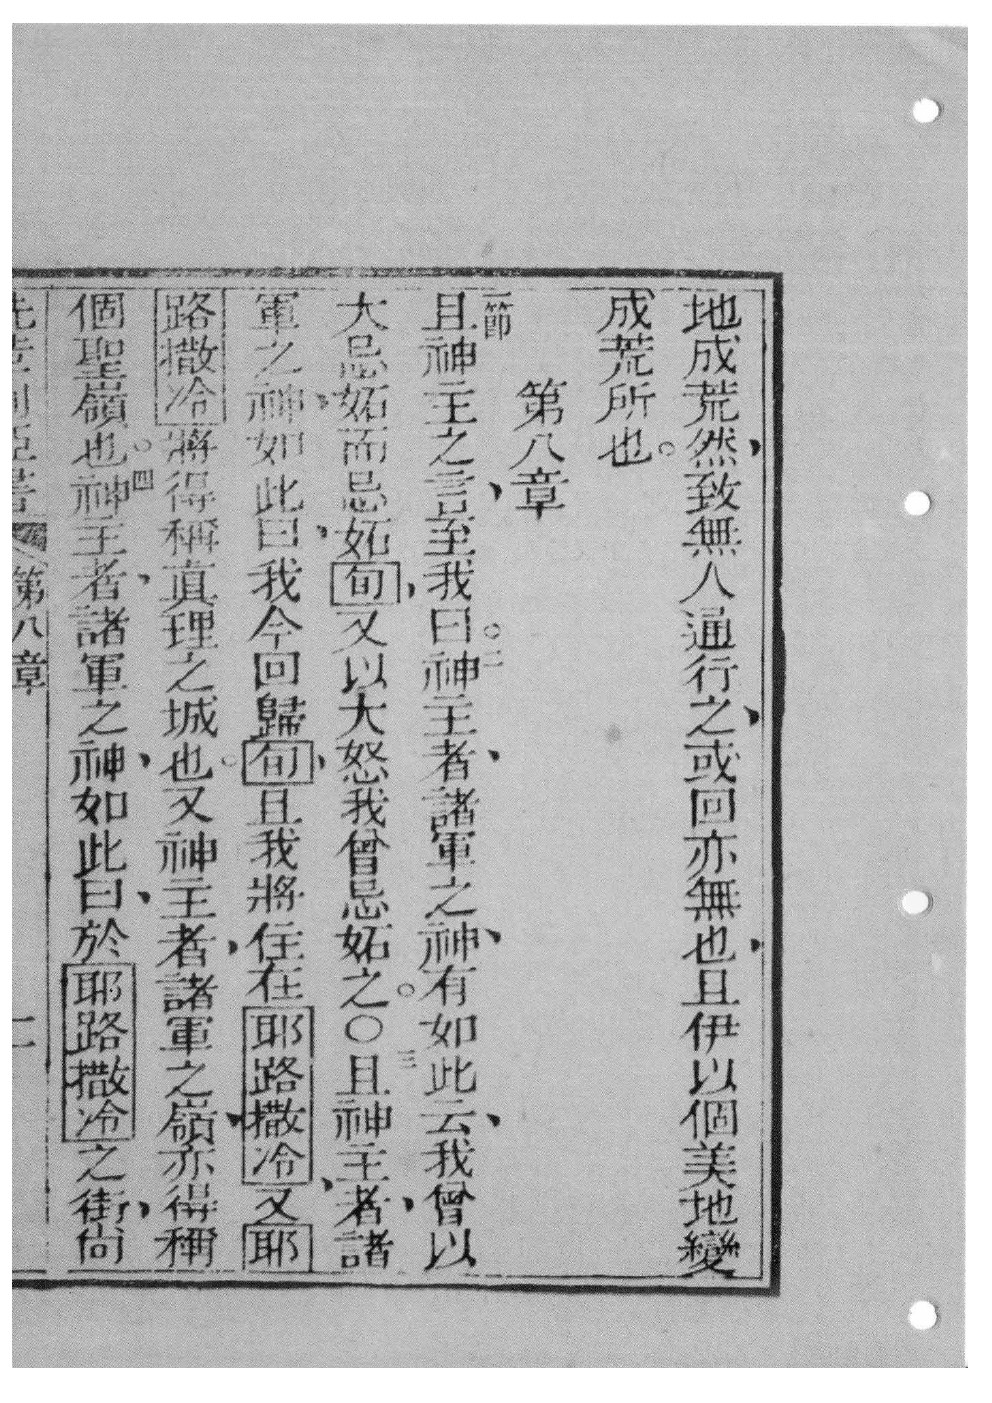 地成荒然、致無人通行之、或回亦無也、且伊以個美地變
成荒所也。
第八章
一節且神主之言、至我曰。二神主者、諸軍之神、有如此云、我曾以
大忌妬而忌妬旬、又以大怒我曾忌妬之。○三且神主者、諸
軍之神、如此曰、我今回歸旬、且我將住在耶路撒冷、又耶
路撒冷將得稱真理之城也。又神主者、諸軍之嶺、亦得稱
個聖嶺也。四神主者、諸軍之神、如此曰、於耶路撒冷之街、尚
第八章 一